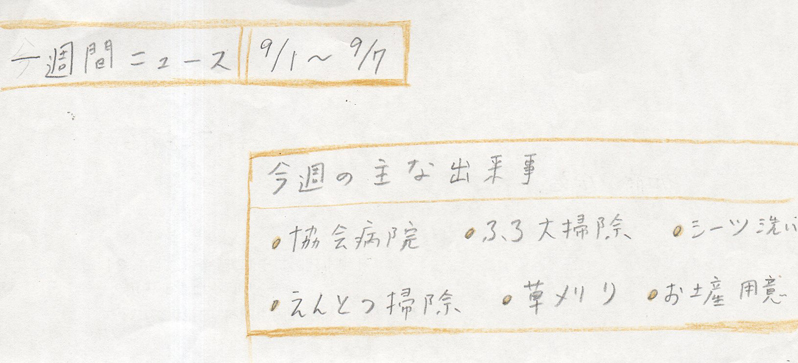 一週間ニュース 9/1～9/7
今週の主な出来事
・協会病院 ・ふろ大掃除 ・シーツ洗い
・えんとつ掃除 ・草刈り ・お土産用意